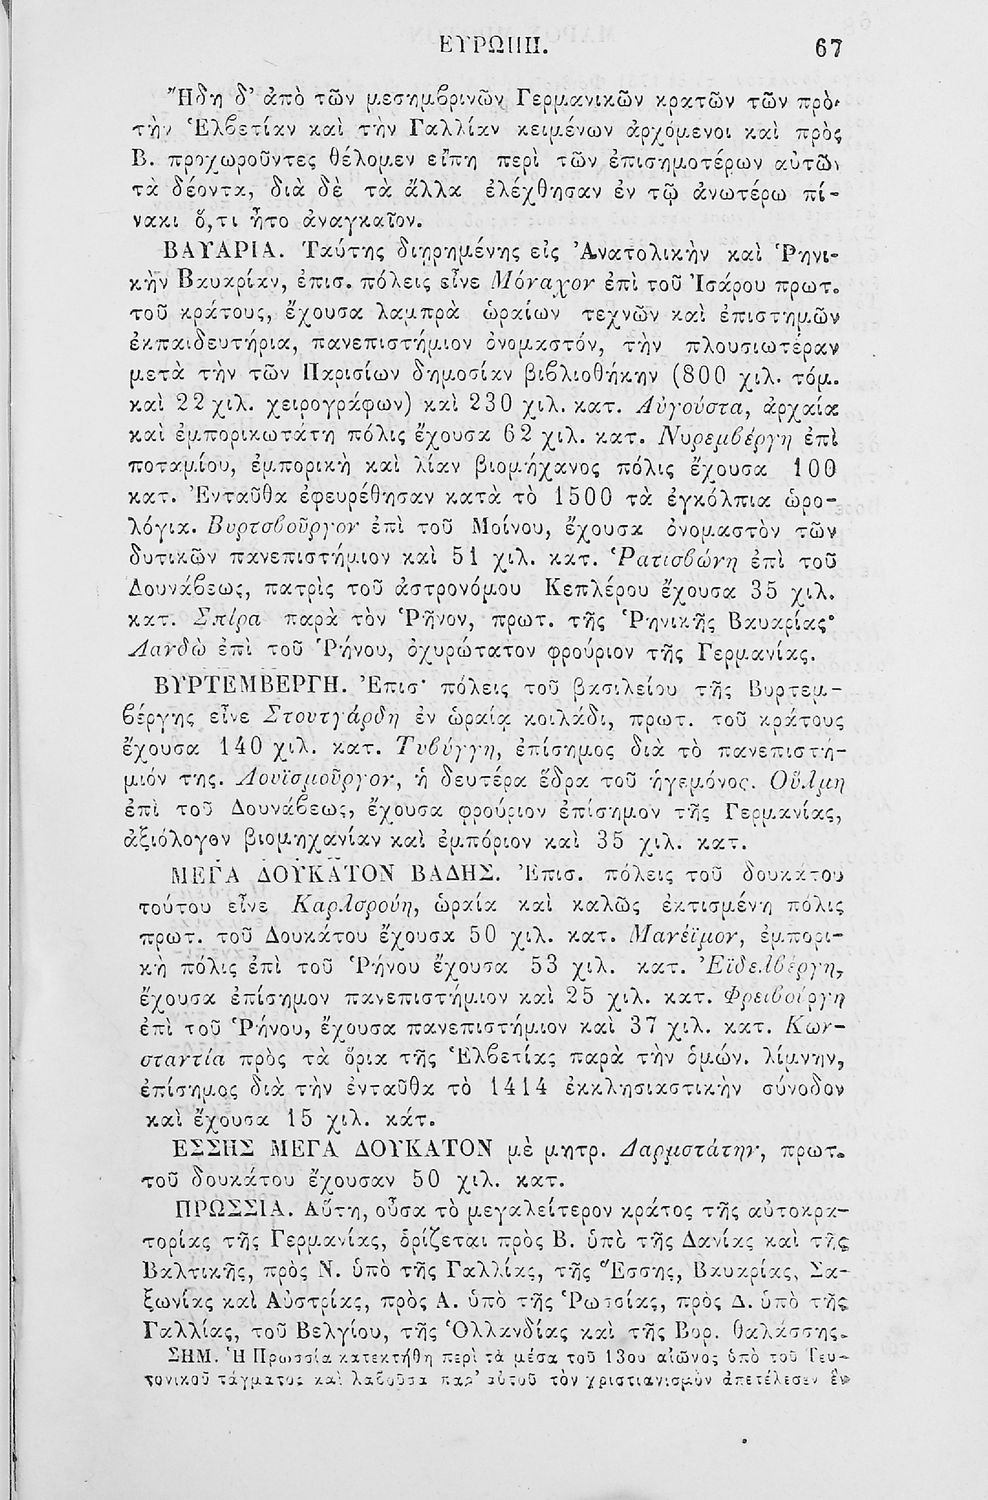 ΕΥΡΩΠΗ. 67
Ἤδη δ’ ἀπὸ τῶν μεσημβρινῶν Γερμανικῶν κρατῶν τῶν πρὸς
τὴν Ἑλβετίαν καὶ τὴν Γαλλίαν κειμένων ἀρχόμενοι καὶ πρὸς
Β. προχωροῦντες θέλομεν εἴπῃ περὶ τῶν ἐπισημοτέρων αὐτῶν
τὰ δέοντα, διὰ δὲ τὰ ἄλλα ἐλέχθησαν ἐν τῷ ἀνωτέρω πί-
νακι ὅ,τι ἦτο ἀναγκαῖον.
ΒΑΥΑΡΙΑ. Ταύτης διῃρημένης εἰς Ἀνατολικὴν καὶ Ῥηνι-
κὴν Βαυαρίαν, ἐπισ. πόλεις εἶνε Μόναχον ἐπὶ τοῦ Ἰσάρου πρωτ.
τοῦ κράτους, ἔχουσα λαμπρὰ ὡραίων τεχνῶν καὶ ἐπιστημῶν
ἐκπαιδευτήρια, πανεπιστήμιον ὀνομαστόν, τὴν πλουσιωτέραν
μετὰ τὴν τῶν Παρισίων δημοσίαν βιβλιοθήκην (800 χιλ. τόμ.
καὶ 22 χιλ. χειρογράφων) καὶ 230 χιλ. κατ. Αὐγούστα, ἀρχαία
καὶ ἐμπορικωτάτη πόλις ἔχουσα 62 χιλ. κατ. Νυρεμβέργη ἐπὶ
ποταμίου, ἐμπορικὴ καὶ λίαν βιομήχανος πόλις ἔχουσα 100
κατ. Ἐνταῦθα ἐφευρέθησαν κατὰ τὸ 1500 τὰ ἐγκόλπια ὡρο-
λόγια. Βυρτσβοῦργον ἐπὶ τοῦ Μοίνου, ἔχουσα ὀνομαστὸν τῶν
δυτικῶν πανεπιστήμιον καὶ 51 χιλ. κατ. Ῥατισβώνη ἐπὶ τοῦ
Δουνάβεως, πατρὶς τοῦ ἀστρονόμου Κεπλέρου ἔχουσα 35 χιλ.
κατ. Σπίρα παρὰ τὸν Ῥῆνον, πρωτ. τῆς Ῥηνικῆς Βαυαρίας·
Λανδὼ ἐπὶ τοῦ Ῥήνου, ὀχυρώτατον φρούριον τῆς Γερμανίας.
ΒΥΡΤΕΜΒΕΡΓΗ. Ἐπισ· πόλεις τοῦ βασιλείου τῆς Βυρτεμ-
βέργης εἶνε Στουτγάρδη ἐν ὡραίᾳ κοιλάδι, πρωτ. τοῦ κράτους
ἔχουσα 140 χιλ. κατ. Τυβύγγη, ἐπίσημος διὰ τὸ πανεπιστή-
μιόν της. Λουϊσμοῦργον, ἡ δευτέρα ἕδρα τοῦ ἡγεμόνος. Οὔλμη
ἐπὶ τοῦ Δουνάβεως, ἔχουσα φρούριον ἐπίσημον τῆς Γερμανίας,
ἀξιόλογον βιομηχανίαν καὶ ἐμπόριον καὶ 35 χιλ. κατ.
ΜΕΓΑ ΔΟΥΚΑΤΟΝ ΒΑΔΗΣ. Ἐπισ. πόλεις τοῦ δουκάτου
τούτου εἶνε Καρλσρούη, ὡραία καὶ καλῶς ἐκτισμένη πόλις
πρωτ. τοῦ Δουκάτου ἔχουσα 50 χιλ. κατ. Μανέϊμον, ἐμπορι-
κὴ πόλις ἐπὶ τοῦ Ῥήνου ἔχουσα 53 χιλ. κατ. Ἐϊδελβέργη,
ἔχουσα ἐπίσημον πανεπιστήμιον καὶ 25 χιλ. κατ. Φρειβούργη
ἐπὶ τοῦ Ῥήνου, ἔχουσα πανεπιστήμιον καὶ 37 χιλ. κατ. Κων-
σταντία πρὸς τὰ ὅρια τῆς Ἑλβετίας παρὰ τὴν ὁμών. λίμνην,
ἐπίσημος διὰ τὴν ἐνταῦθα τὸ 1414 ἐκκλησιαστικὴν σύνοδον
καὶ ἔχουσα 15 χιλ. κάτ.
ΕΣΣΗΣ ΜΕΓΑ ΔΟΥΚΑΤΟΝ μὲ μητρ. Δαρμστάτην, πρωτ.
τοῦ δουκάτου ἔχουσαν 50 χιλ. κατ.
ΠΡΩΣΣΙΑ. Αὕτη, οὖσα τὸ μεγαλείτερον κράτος τῆς αὐτοκρα-
τορίας τῆς Γερμανίας, ὁρίζεται πρὸς Β. ὑπὸ τῆς Δανίας καὶ τῆς
Βαλτικῆς, πρὸς Ν. ὑπὸ τῆς Γαλλίας, τῆς Ἕσσης, Βαυαρίας, Σα-
ξωνίας καὶ Αὐστρίας, πρὸς Α. ὑπὸ τῆς Ῥωσσίας, πρὸς Δ. ὑπὸ τῆς
Γαλλίας, τοῦ Βελγίου, τῆς Ὁλλανδίας καὶ τῆς Βορ. θαλάσσης.
ΣΗΜ. Ἡ Πρωσσία κατεκτήθη περὶ τὰ μέσα τοῦ 13ου αἰῶνος ὑπὸ τοῦ Τευ-
τονικοῦ τάγματος καὶ λαβοῦσα παρ’ αὐτοῦ τὸν χριστιανισμὸν ἀπετέλεσεν ἓν